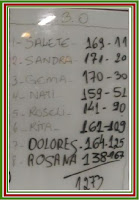 3.0
1 - SALETE - 169 - 11
2 - SANDRA - 171 - 20
3 - GEMA - 170 - 30
4 - NATI - 159 - 51
5 - ROSELI - 141 - 90
6 - RITA - 161 - 109
7 DOLORES - 164 - 125
8 - ROSANA 138 - 167
1273